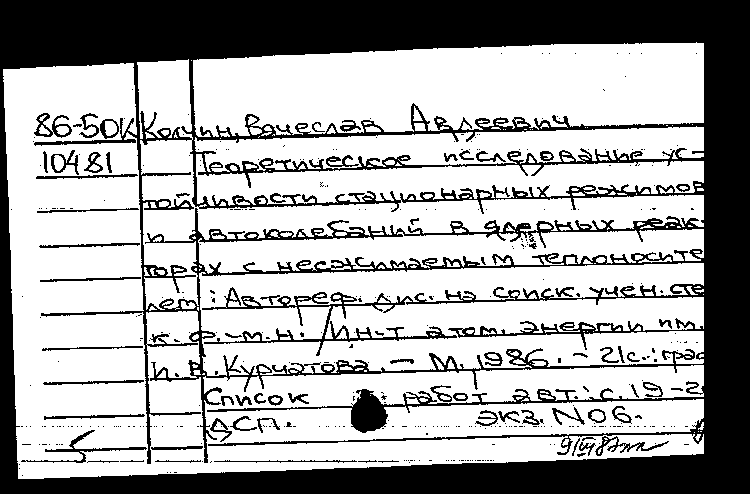 86-50К Колчин, Вячеслав Авдеевич.
10481 Теоретическое исследование ус-
тойчивости стационарных режимов
и автоколебаний в ядерных реак-
торах с несжимаемым теплоносите
лем : Автореф. дис. на соиск. учен. сте
к. ф.-м.н. / Ин-т атом. энергии им.
И. В. Курчатова. - М. 1986. - 21с. : граф
Список работ авт.: с. 19-2
ДСП. экз. N06.
5